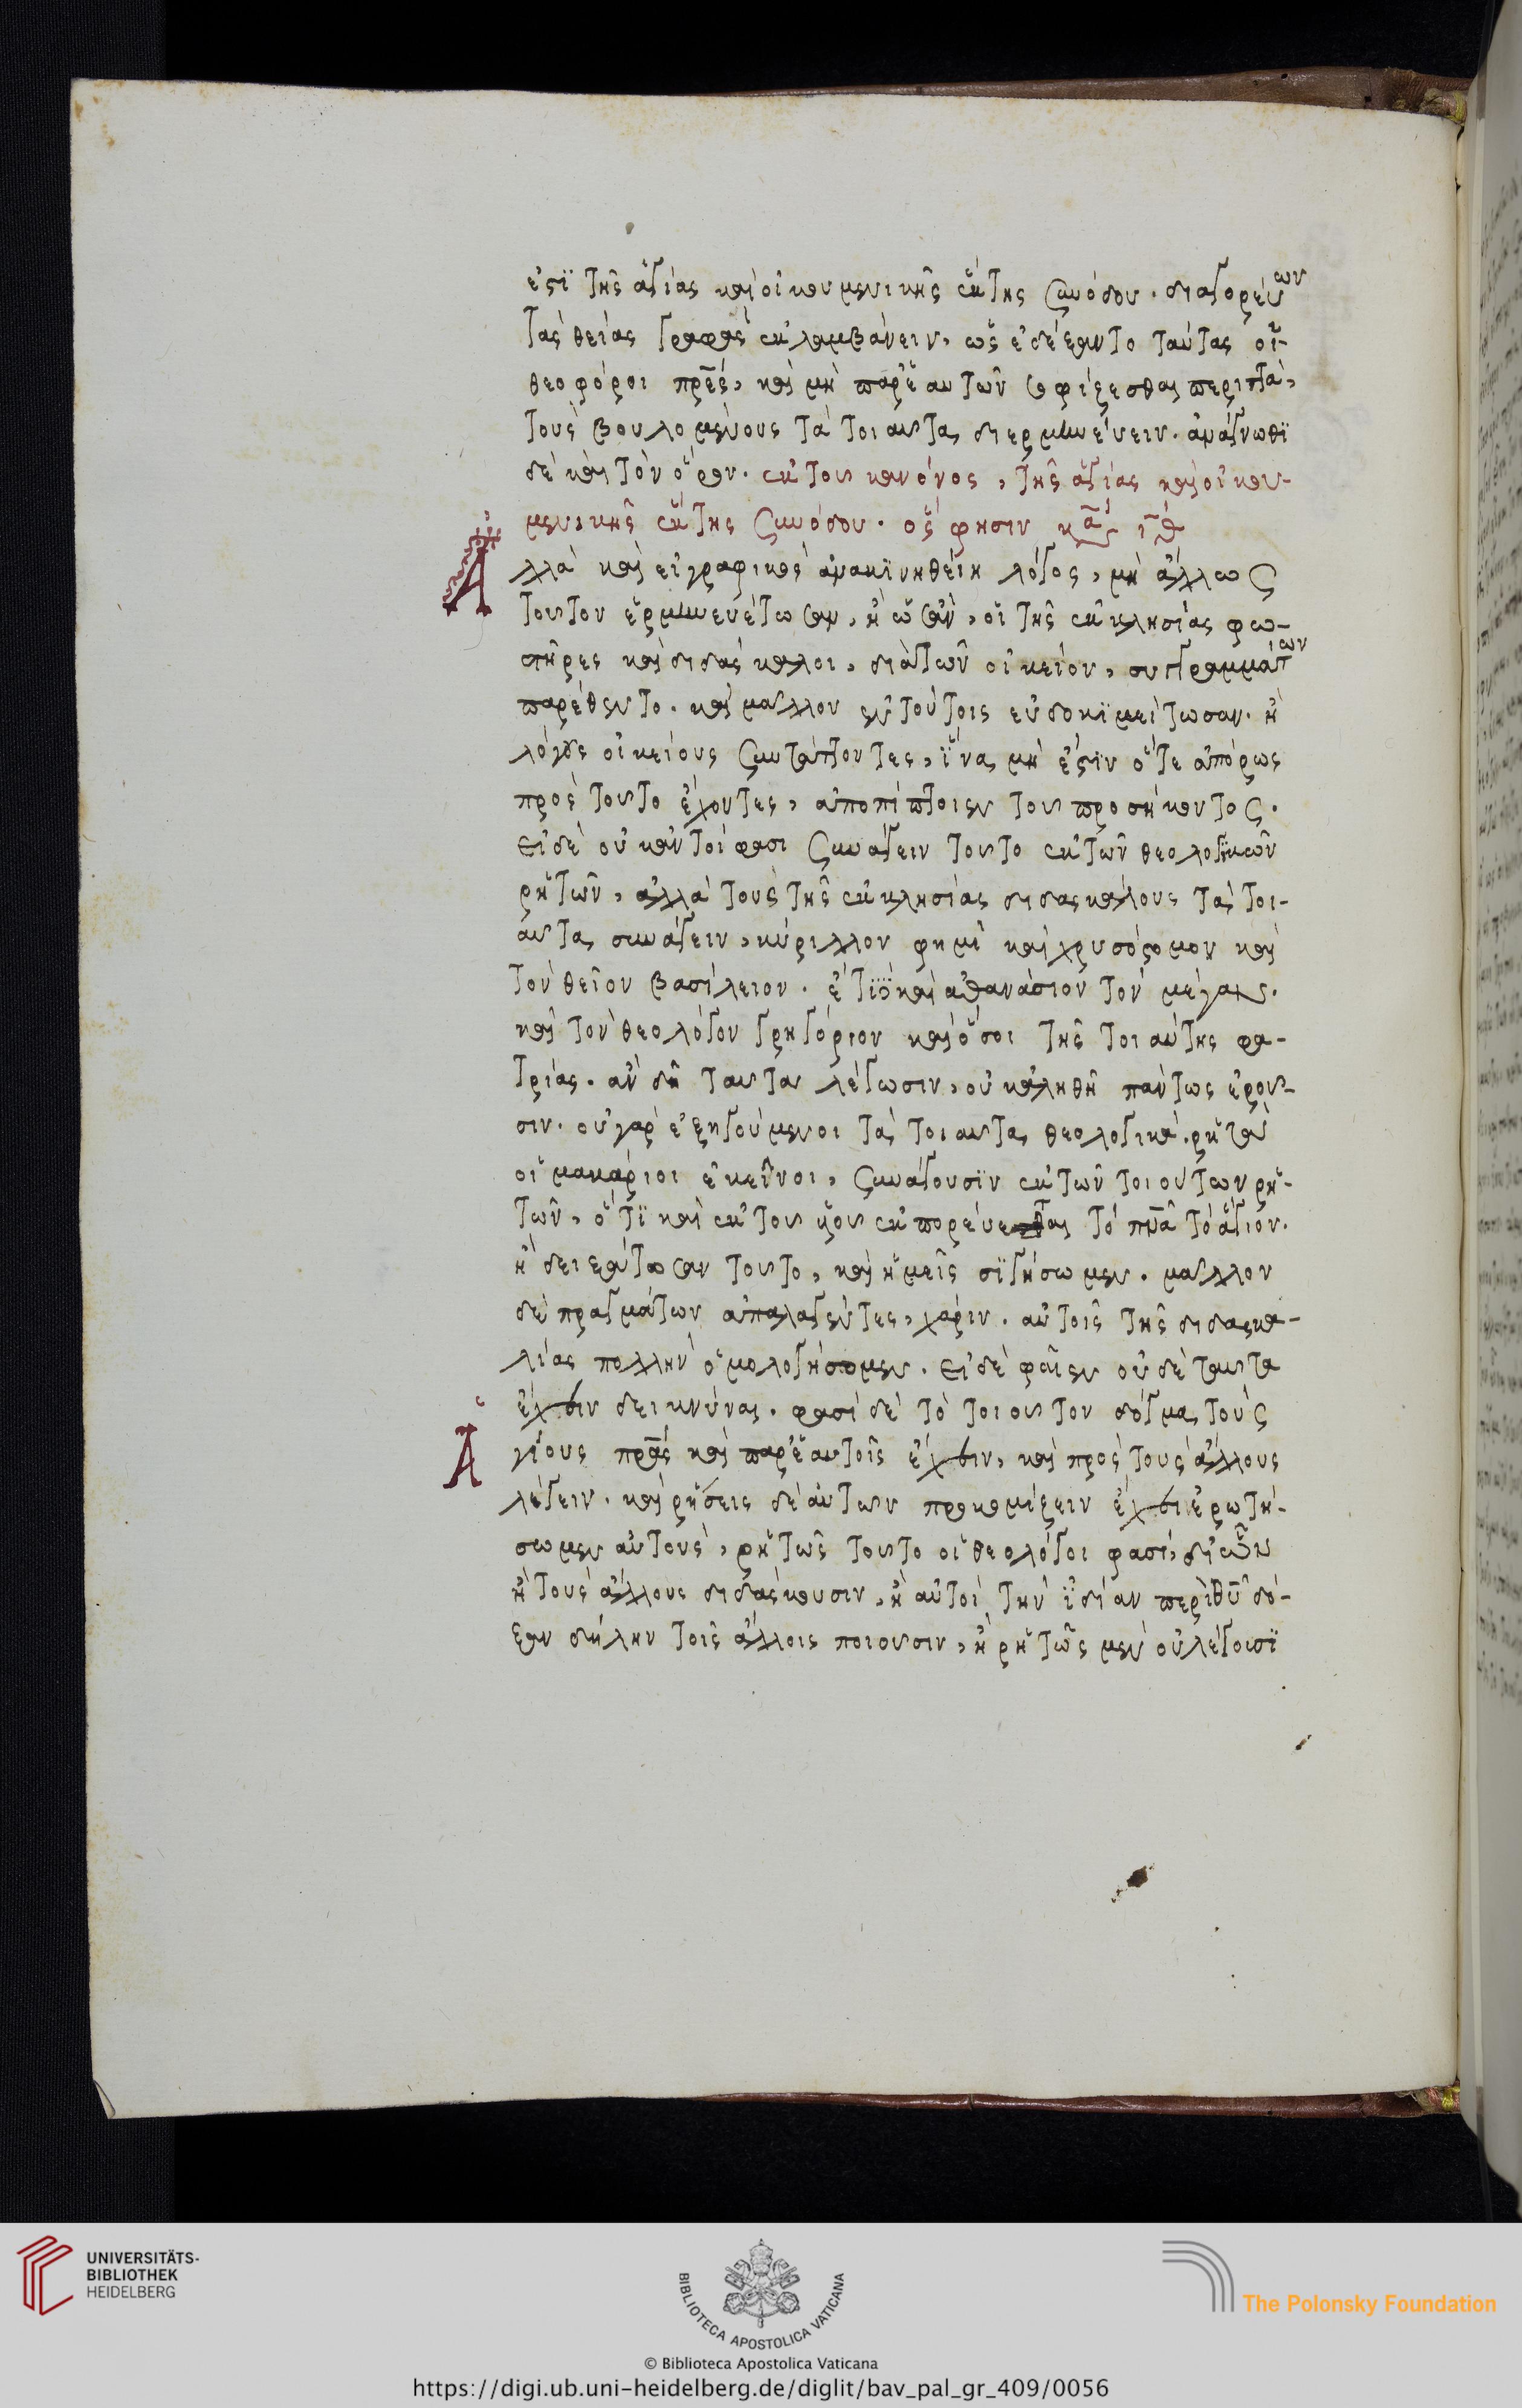 ἐστὶ τῆς ἁγίας καὶ οἰκουμενικῆς ἕκτης συνόδου. διαγορεύων
τὰς θείας γραφὰς ἐκλαμβάνειν, ὡς ἐδέξαντο ταύτας οἱ
θεοφόροι πρες, καὶ μὴ παρ' ἑαυτῶν σοφίζεσθαι περιττὰ,
τοὺς βουλομένους τὰ τοιαῦτα διερμηνεύειν. ἀνάγνωθι
δὲ καὶ τὸν ὅρον. ἐκ τοῦ κανόνος, τῆς ἁγίας καὶ οἰκου-
μενικῆς ἕκτης συνόδου. ὅς φησιν
Ἀλλὰ καὶ εἰ γραφικὸς ἀνακινηθείη λόγος, μὴ ἄλλως
τοῦτον ἑρμηνευέτωσαν, ἢ ὡς ἂν, οἱ τῆς ἐκκλησίας φω-
στῆρες καὶ διδάσκαλοι, διὰ τῶν οἰκείον, συγγραμμάτων
παρέθεντο. καὶ μᾶλλον ἐν τούτοις εὐδοκιμείτωσαν. ἢ
λόγους οἰκείους συντάττοντες, ἵνα μὴ ἔστιν ὅτε ἀπόρως
πρὸς τοῦτο ἔχοντες, ἀποπίπτοιεν τοῦ προσήκοντος.
Εἰ δὲ οὐκ αὐτοί φασι συνάγειν τοῦτο ἐκ τῶν θεολογικῶν
ῥητῶν, ἀλλὰ τοὺς τῆς ἐκκλησίας διδασκάλους τὰ τοι-
αῦτα συνάγειν, κύριλλον φημὶ καὶ χρυσόστομον καὶ
τὸν θεῖον βασίλειον. ἔτι καὶ ἀθανάσιον τὸν μέγαν.
καὶ τὸν θεολόγον γρηγόριον καὶ ὅσοι τῆς τοιαύτης φα-
τρίας. ἂν δὴ ταῦτα λέγωσιν, οὐκ ἀληθῆ πάντως ἐροῦ-
σιν. οὐ γὰρ ἐξηγούμενοι τὰ τοιαῦτα θεολογικά. ῥητὰ
οἱ μακάριοι ἐκεῖνοι, συνάγουσιν ἐκ τῶν τοιούτων ῥη-
τῶν, ὅτι καὶ ἐκ τοῦ υἱοῦ ἐκπορεύεσθαι τὸ πνα τὸ ἅγιον.
ἢ δειξάτωσαν τοῦτο, καὶ ἡμεῖς σιγήσωμεν. μᾶλλον
δὲ πραγμάτων ἀπαλαγέντες, χάριν. αὐτοῖς τῆς διδασκα-
λίας πολλὴν ὁμολογήσομεν. Εἰ δὲ φαῖεν οὐδὲ ταῦτα
ἔχειν δεικνύναι. φασὶ δὲ τὸ τοιοῦτον δόγμα τοὺς
Ἁγίους πρας καὶ παρ' ἑαυτοῖς ἔχειν, καὶ πρὸς τοὺς ἄλλους
λέγειν. καὶ ῥήσεις δὲ αὐτῶν προκομίζειν ἔχειν ἐρωτή-
σωμεν αὐτοὺς, ῥητῶς τοῦτο οἱ θεολόγοι φασὶ, δι' ὧν
ἢ τοὺς ἄλλους διδάσκουσιν, ἢ αὐτοὶ τὴν ἰδίαν περὶ θυ δό-
ξαν δήλην τοῖς ἄλλοις ποιοῦσιν, ἢ ῥητῶς μὲν οὐ λέγουσι
UNIVERSITÄTS-
BIBLIOTHEK
HEIDELBERG
BIBLIOTECA APOSTOLICA VATICANA
The Polonsky Foundation
© Biblioteca Apostolica Vaticana
https://digi.ub.uni-heidelberg.de/diglit/bav_pal_gr_409/0056